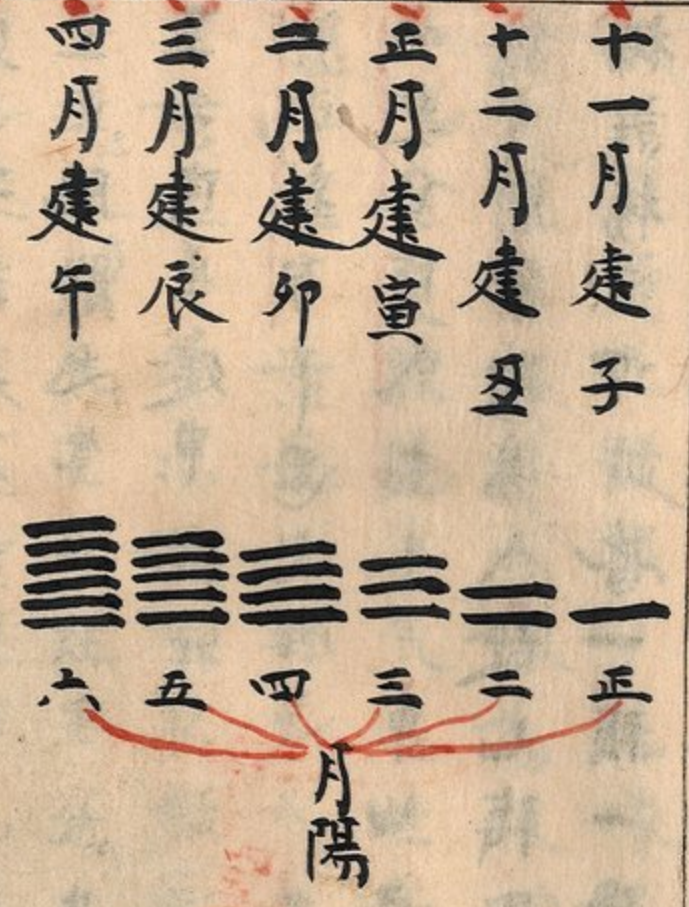 十一月建子
十二月建丑
正月建寅
二月建卯
三月建辰
四月建午
正
二
三
四
五
六
月陽